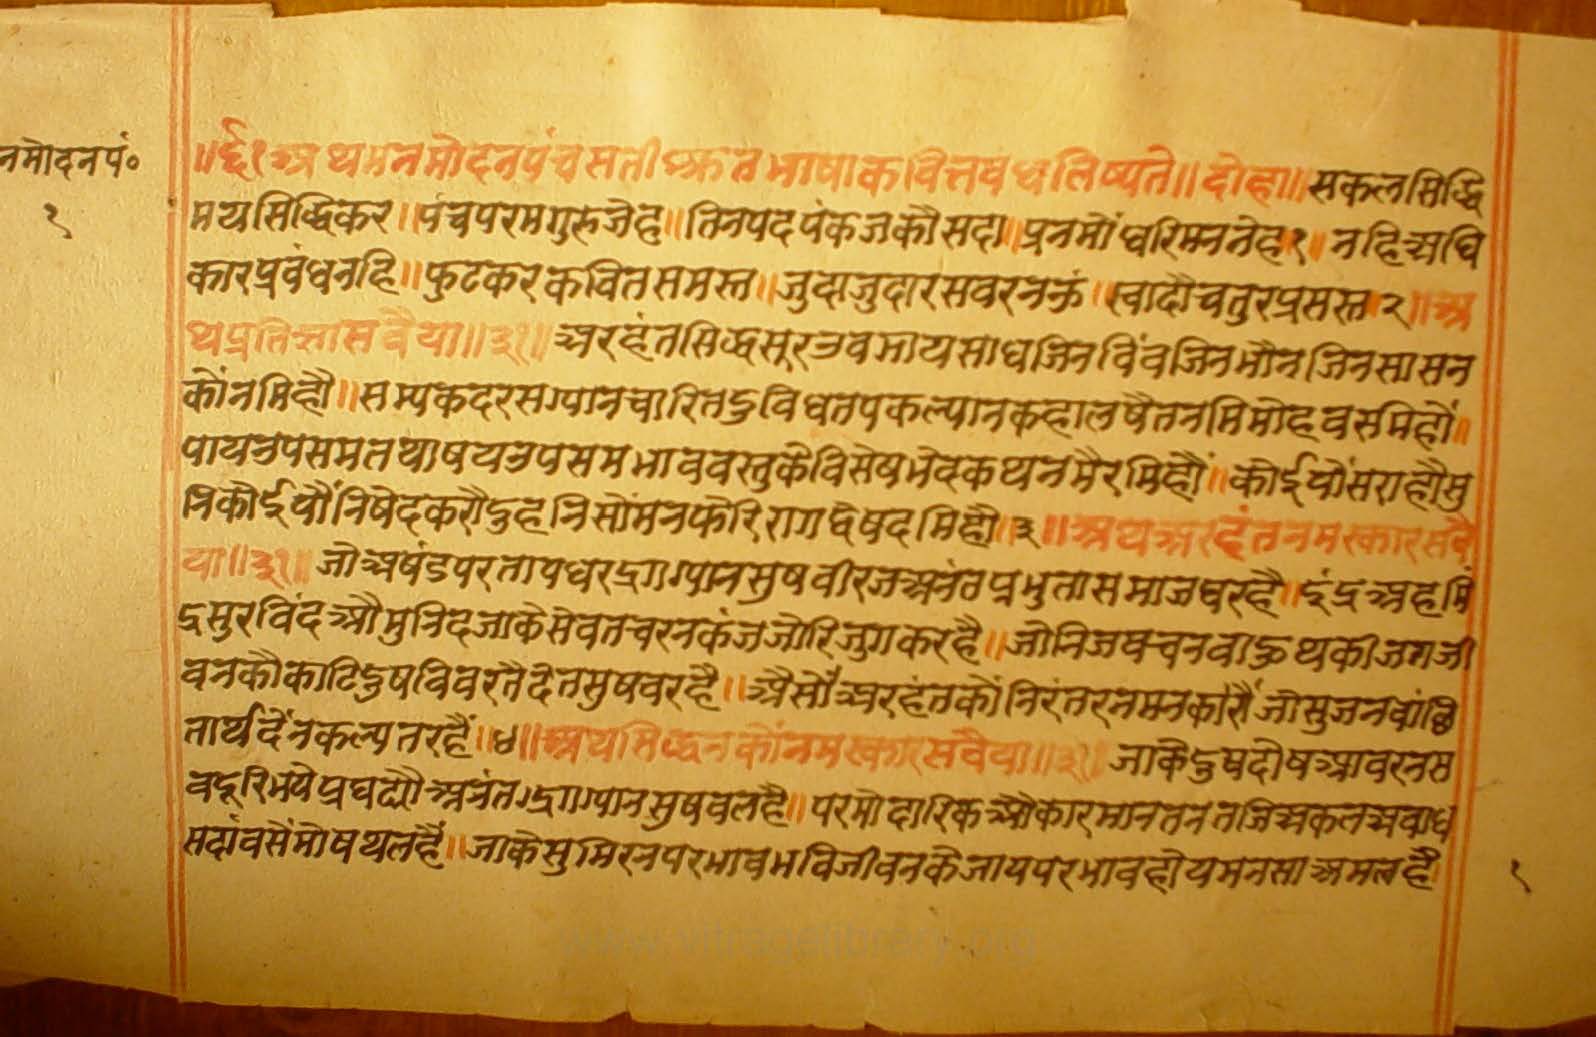 नमोदनपं॰
१
॥ अथमनमोदनपंचसतीकृतभाषाकवित्तवंधलिष्यते॥ दोहा॥ सकलसिद्धि
मयसिद्धिकर॥ पंचपरमगुरुजेह॥ तिनपदपंकजकौसदा॥ प्रनमोंधरिमननेह१॥ नहिअधि
कारप्रवंधनहि॥ फुटकरकवितसमस्त॥ जुदाजुदारसवरनऊं॥ स्वादौचतुरप्रसस्त२॥ अ
थप्रतिज्ञासवैया॥३१॥ अरहंतसिद्धसूरउवमायसाधजिनविंवजिनभौनजिनसासन
कोंनमिहौ॥ सम्यकदरसग्यानचारितदुविधतपकल्यानकहालषैतनमिमोहवसमिहों॥
पायउपसमतथाषयउपसमभाववस्तुकेविसेषभेदकथनमैरमिहौं॥ कोईयौंसराहौमु
निकोईयौंनिषेदकरौदुहनिसोंमनफेरिरागद्वेषदमिहौ॥३॥ अथअरहंतनमस्कारसवै
या॥३१॥ जोअषंडपरतापधरद्रगग्यानसुषवीरजअनंतप्रभुतासमाजघरहै॥ इंद्रअहमिं
द्रसुरविंदऔमुनिदजाकेसेवतचरनकंजजोरिजुगकरहै॥ जोनिजवचनवाऊथकीजगजी
वनकौकाटिदुषविवरतैदेतसुषवरहै॥ औसौअरहंतकौंनिरंतरनमनकारौंजोसुजनवांछि
तार्थदेंनकल्पतरहैं॥४॥ अथसिद्धनकौंनमस्कारसवैया॥३१॥ जाकेदुषदोषआवरनस
वदूरिभयेप्रघट्यौअनंतद्रगग्यानसुषवलहै॥ परमोदारिकऔकारमानतनतजिअकलअवाध
सदांवसैंमोषथलहै॥ जाकेसुमिरनपरभावभविजीवनकेजायपरभावहोयमनसाअमलहै
१
www.vitragelibrary.org